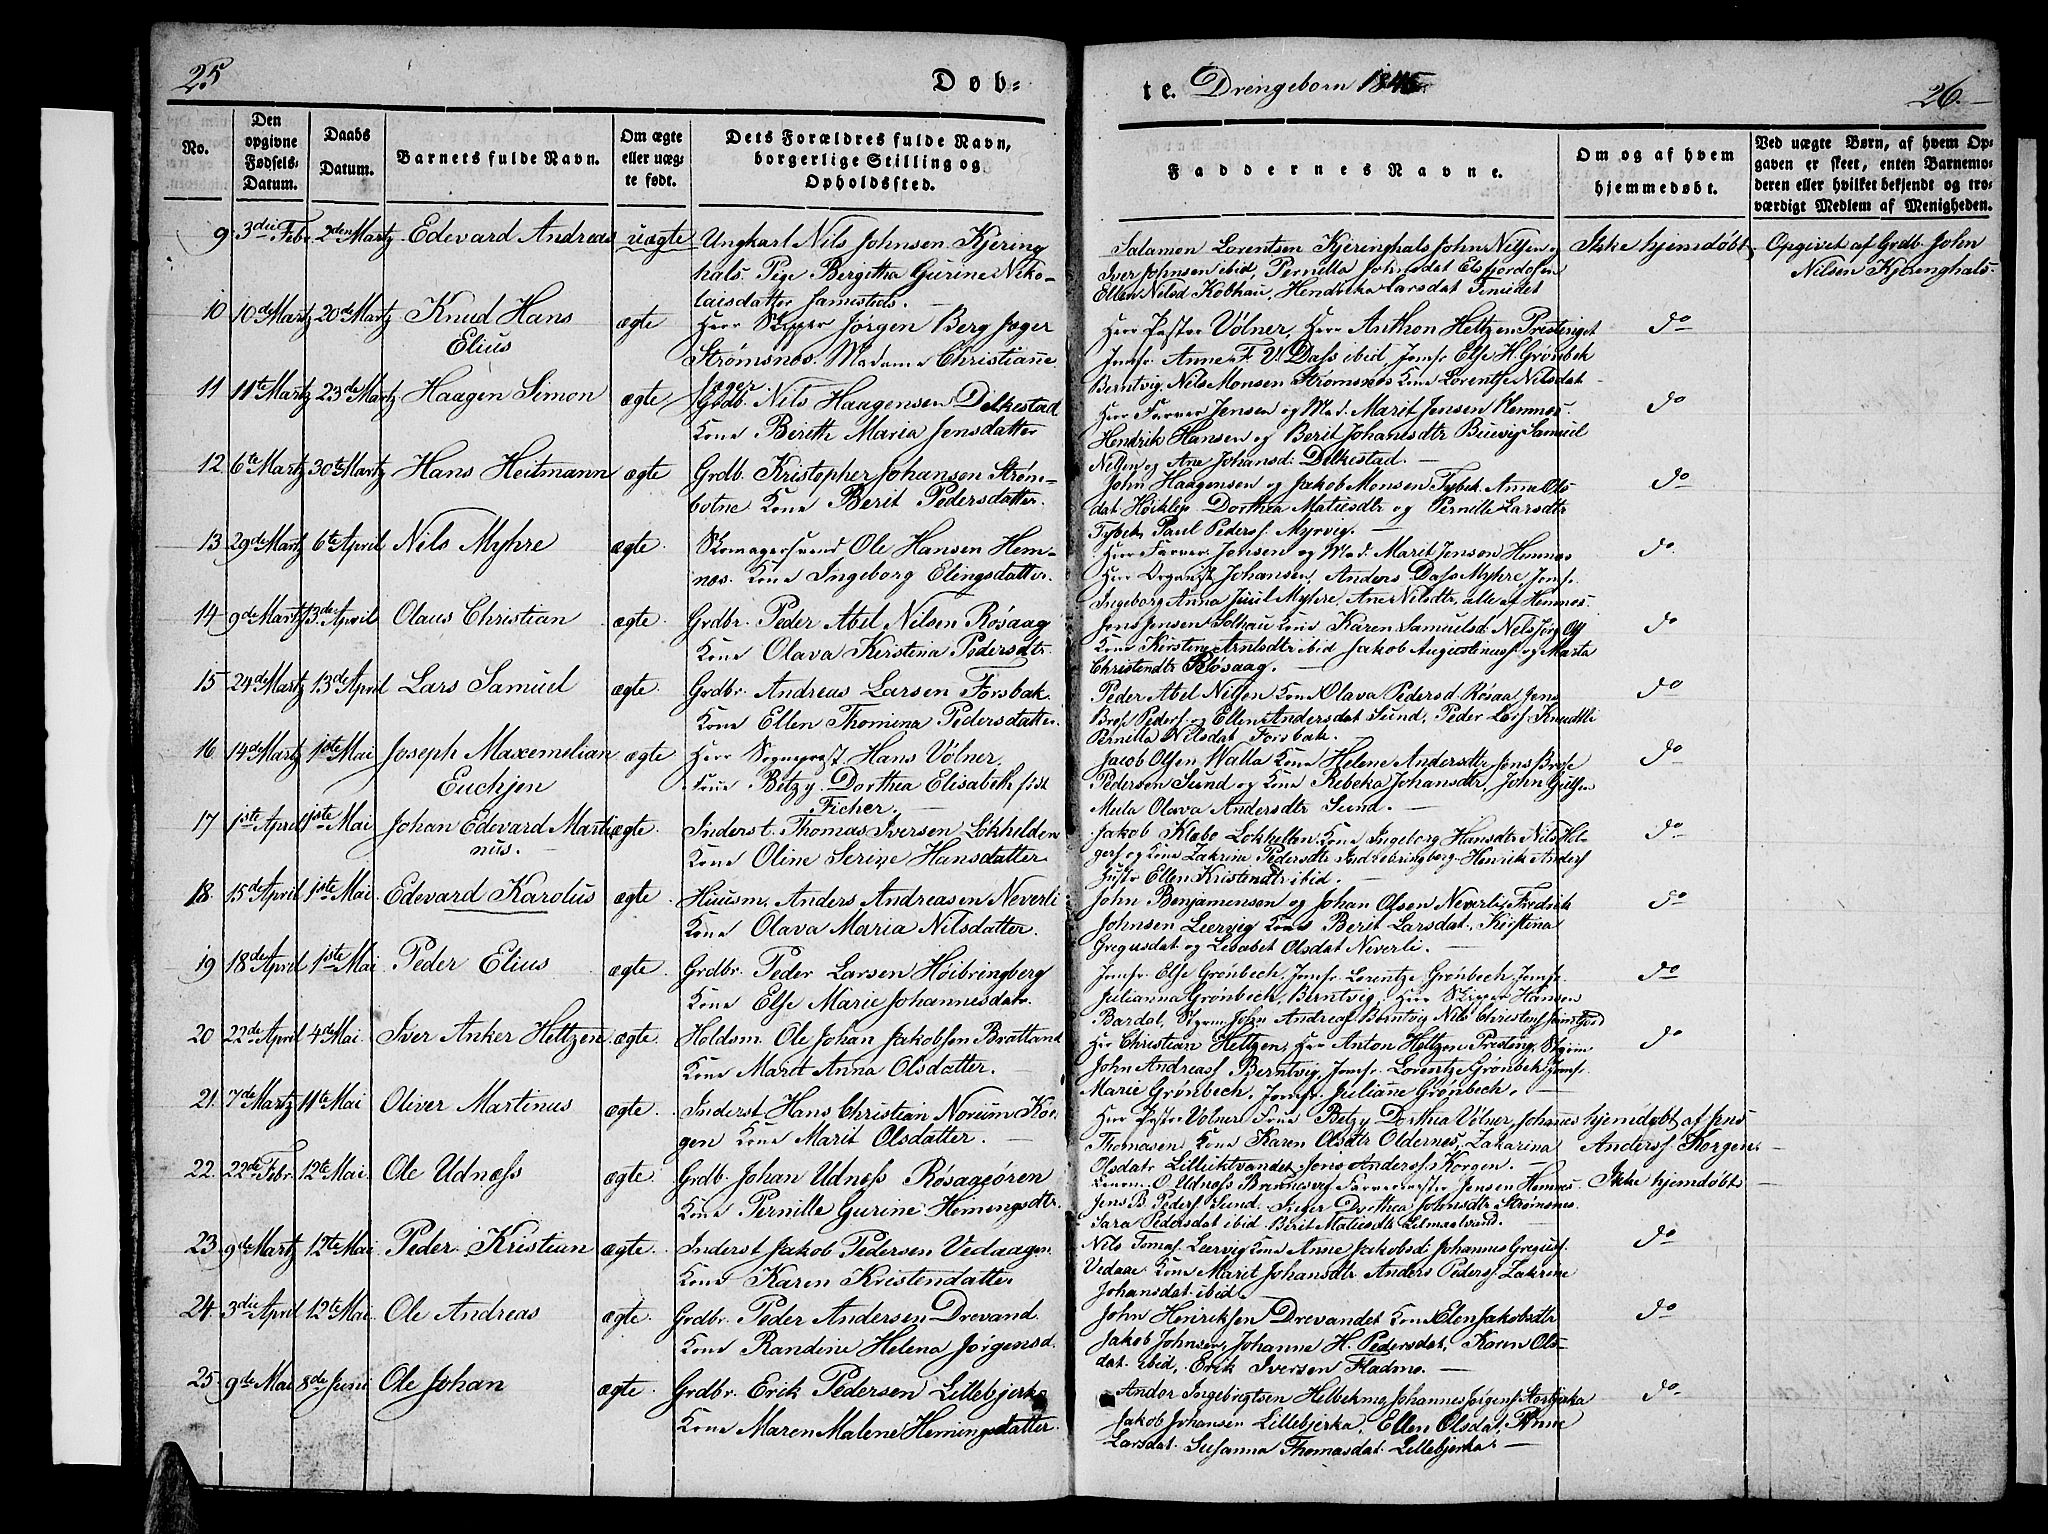 25
Døb=
te. Drengeborn 1845
26.
No.
Den opgivne Fødsels-Datum.
Daabs Datum.
Barnets fulde Navn.
Om ægte eller uægte født.
Dets Forældres fulde Navn, borgerlige Stilling og Opholdssted.
Faddernes Navne.
Om og af hvem hjemmedøbt.
Ved uægte Børn, af hvem Opgaven er skeet, enten Barnemoderen eller hvilket bekjendt og troværdigt Medlem af Menigheden.
9. 3die Febr. 2den Martz. Edevard Andreas uægte Ungkarl Nils Johnsen Kjering
hals. Pige Bergitha Gurine Niko-
laisdatter Samesteds.
Salamon Lorentsen Kjeringhals John Nilsen og
Iver Johnsen ibid, Pernella Johnsdat Elsfjordosen
Ellen Nilsd Kobhau, Hendrika Larsdat
Ikke hjemdøbt Opgivet af Grdb. John
Nilsen Kjeringhals.
10 10de Martz 20de Martz Knud Hans
Elius
ægte Herr Skipper Jørgen Berg Jæger
Strømsnes. Madame Christiane
Jæger.
Herr Pastor Völner, Herr Anthon Heltzen Prestenget
Jomfr. Anne F. V. Dass ibid Jomfr Else H. Grönbek
Berntvig, Nils Monsen Strømsnes Kone Lorentse Nilsdat
do
11 11te Martz 23de Martz Haagen Simon ægte Grdb. Nils Haagensen Dilkestad
Kone Berith Maria Jensdatter
Herr Farver Jensen og Md. Marit Jensen Hemnes.
Hendrik Hansen og Berit Johansdtr Buvig Samuel
Nilsen og Ane Johansd. Dilkestad.
do
12 6te Martz 30te Martz Hans Heitmann ægte Grdb. Kristopher Johansen Strøm-
botne Kone Berit Pedersdatter.
John Haagensen og Jakob Monsen Tybek. Anne Ols-
dat Høiklip Dorthea Matiesdtr og Pernille Larsdtr
Tybek, Paul Peders. Myrvig.
do
13 29de Martz 6te April Nils Myhre ægte Skomagersvend Ole Hansen Hem-
nes. Kone Ingeborg Elingsdatter.
Herr Farver Jensen og Md. Marit Jensen Hemnes
Herr Organist Johansen, Anders Dass Myhre, Jomfr.
Ingeborg Anna Juul Myhre, Ane Nilsdtr, alle af Hemnes.
do
14 9de Martz 13de April Olaus Christian ægte. Grdbr. Peder Abel Nilsen Røsaag
Kone Olava Kerstina Pedersdtr
Jens Jensen Solhau Kone Karen Samuelsd. Nils Jørg
Kone Kirstine Arntsdtr ibid Jakob Augustinus. og Marta
Christendtr Røsaag.
do
15 24de Martz 13de April Lars Samuel ægte. Grdbr. Andreas Larsen Forsbak.
Kone Ellen Thomina Pedersdatter.
Peder Abel Nilsen Kone Olava Pedersd. Røsaa, Jens
Brose Peders. og Ellen Andersdat Sund, Peder Lars. Knudtli
Pernella Nilsdat Forsbak.
do
16 14de Martz 1ste Mai Joseph Maxemelian
Euchjen
ægte Herr Sognepræst Hans Völner.
Frue Betzy Dorthea Elisabeth, født
Ficher.
Jacob Olsen Walla Kone Helene Andersdtr Jens Brose
Pedersen Sund og Kone Rebeka Johansdtr, John
Meila Olava Andersdtr Sund.
do
17 1ste April 1ste Mai Johan Edevard Marti-
nus.
ægte. Inderst. Thomas Iversen Løkhelden
Kone Oline Serine Hansdatter
Jakob Klæbo Løkhellen Kone Ingeborg Hansdtr Nils Hel-
gers og Kone Zakrine Pedersdtr Henrik Anders
Ellen Kristendtr ibid.
do
18. 15de April 1ste Mai Edevard Karolus ægte. Huusm. Anders Andreasen Neverli
Kone Olava Maria Nilsdatter.
John Benjamensen og Johan Olsen Neverli, Fredrik
Johnsen Leervig Kone Berit Larsdat. Kirstina
Gregusdat og Lisabet Olsdat Neverli.
do
19 18de April 1ste Mai Peder Elius ægte. Grdbr. Peder Larsen Høibringberg
Kone Else Marie Johannesdatr.
Jomfr. Else Grønbech, Jomfr. Lorentze Grønbech, Jomfr.
Julianna Grønbech, Berntvig, Herr Skipper Hansen
Bardal, John Andreas. Berntvig Nils Christens.
do
20 22de April 4de Mai Iver Anker Heltzen ægte. Holdsm. Ole Johan Jakobsen Bratland
Kone Marit Anna Olsdatter.
Hr Christian Heltzen, Hr Anton Heltzen Presteng,
John Andreas. Berntvig, Jomfr. Lorentze Grønbek Jomfr.
Marie Grønbech, Jomfr. Juliane Grønbech.
do
21. 7de Martz 11te Mai Oliver Martinus ægte. Inderst Hans Christian Norum Kor-
gen Kone Marit Olsdatter.
Herr Pastor Völner Frue Betzy Dorthea Völner, Johannes
Thomasen, Kone Karen Olsdtr Oldernes, Zakarina
Olsdatr Jens Anders. Korgen.
hjemdøbt af Jens
Anders. Korgen.
22. 22de Febr. 12te Mai. Ole Udness ægte. Grdb. Johan Udness Røsaaøren
Kone Pernille Gurine Hemingsdtr.
O. Udness Farvermester Jensen Hemnes
Jens B. Peders. Sund. Inger Dorthea Johnsdtr Strømsnes
Sara Pedersdat ibid. Berit Matiesdtr
Ikke hjemdøbt
23. 9de Martz 12te Mai. Peder Kristian ægte. Inderst Jakob Pedersen Vedaagen.
Kone Karen Kristendatter
Nils Tomas. Leervig Kone Anne Jakobsd. Johannes Gregus.
Vedaae Kone Marit Johansdtr Anders Peders. Zakrine
Johansdat. ibid.
do
24. 3die April 12te Mai. Ole Andreas ægte. Grdbr. Peder Andersen Drevand
Kone Randine Helena Jørgensd.
John Henriksen Drevandet Kone Elen Jakobsdtr
Jakob Johnsen, Johanne H. Pedersdat, Karen Ols-
dat. ibid, Erik Iversen Fladmo.
do
25. 9de Mai 8de Juni Ole Johan ægte. Grdbr. Erik Pedersen Lillebjerka
Kone Maren Malene Hemingsdatter.
Andor Ingebrigtsen Helbekmo, Johannes Jørgens. Storbjerka
Jakob Johansen Lillebjerka, Ellen Olsdat, Anne
Larsdat. Susanna Thomasdat. Lillebjerka.
do